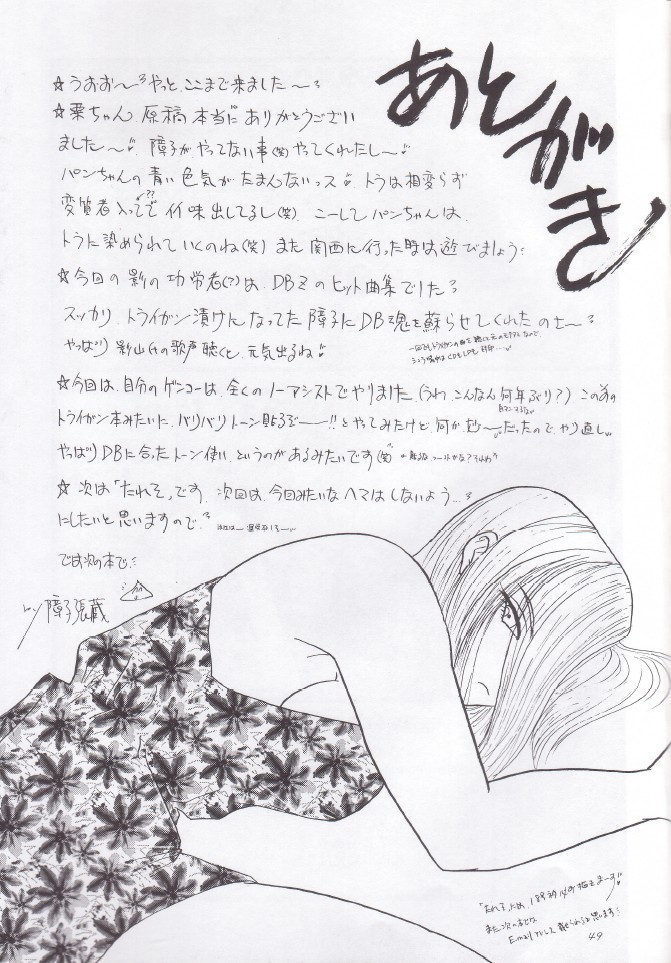 あとがき
☆うおお〜やっと、ここまで来ました〜
☆栗ちゃん、原稿本当にありがとうござい
ました〜 障子が、やってない事(笑)やってくれたし〜
パンちゃんの青い色気がたまんないっス トラは相変らず
変質者入ってて イイ味出してるし(笑) こーしてパンちゃんは、
??
トラに染められていくのね(笑) また関西に行った時は遊びましょう
☆今回の影の功労者(?)は、DBZのヒット曲集でした
スッカリ、トライガン漬けになってた障子にDB魂を蘇らせてくれたのさ〜
やっぱり影山さんの歌声聴くと、元気出るね
☆今回は、自分のゲンコーは、全くのノーアシストでやりました。(うわ、こんなん何年ぶり?) この前の
トライガン本みたいに、バリバリトーン貼るぞーー!!とやってみたけど、何か妙〜だったので、やり直し。
やっぱりDBに合ったトーン使い、というのがあるみたいです(笑)
☆ 次は「たれそ」です。次回は、今回みたいなヘマはしないよう…
にしたいと思いますので。
では次の本で
障子張蔵
また次のあとがき
Emailアドレス 載せられると思います
49